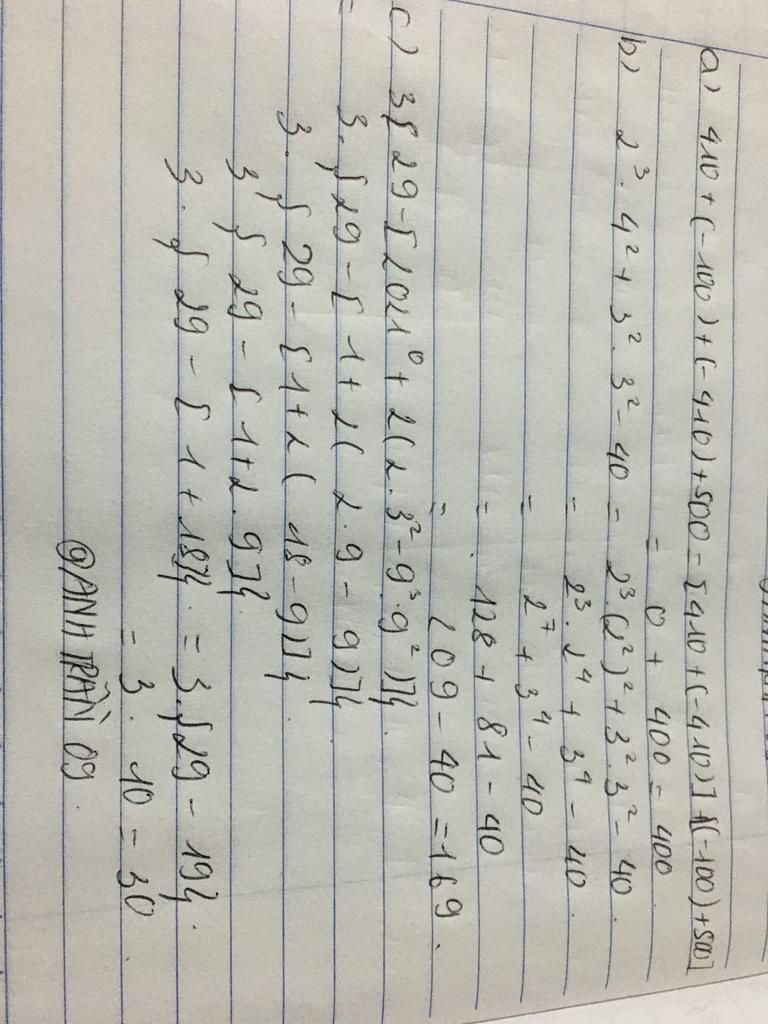 a) 410 + (-100) + (-410) + 500 = [410 + (-410)] + [(-100) + 500]
= 0 + 400 = 400
b) 2³ . 4² + 3² . 3² - 40 = 2³ (2²)² + 3² . 3² - 40.
= 2³ . 2⁴ + 3⁴ - 40.
= 2⁷ + 3⁴ - 40
= 128 + 81 - 40
= 209 - 40 = 169.
c) 3{29 - [2021⁰ + 2(2.3² - 9³.9²)]}.
= 3.{29 - [1 + 2(2.9 - 9)]}
3.{29 - [1 + 2(18 - 9)]}.
3{29 - [1 + 2.9]}.
3.{29 - [1 + 18]}. = 3.{29 - 19}.
= 3. 10 = 30
@ANHTRẦN 09.